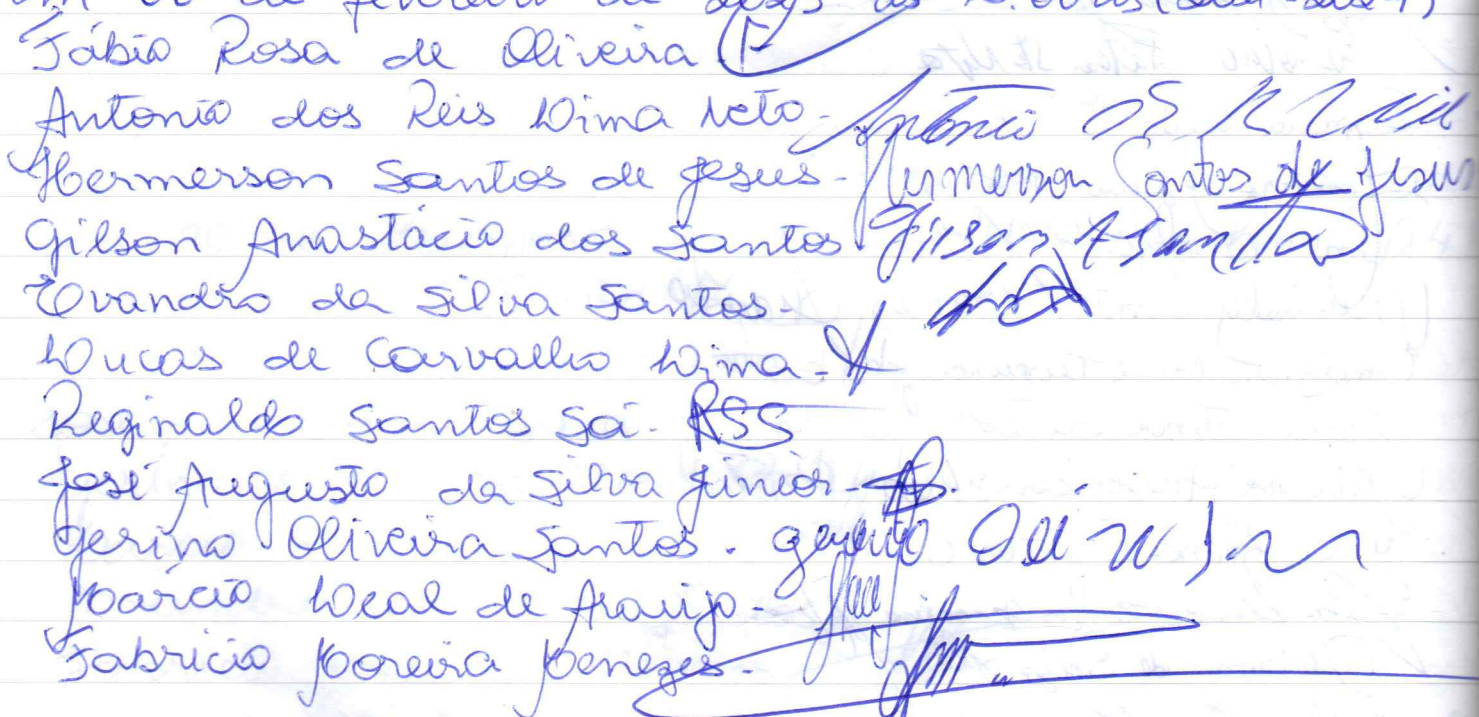 de fevereiro de as
Fábio Rosa de Oliveira
Antonio dos Reis Lima Neto- Antonio
Hermerson Santos de Jesus- Hermerson Santos de Jesus
Gilson Anastácio dos Santos Gilson A Santos
Evandro da Silva Santos-
Lucas de Carvalho Lima-
Reginaldo Santos Sá- RSS
José Augusto da Silva Júnior-
Gerino Oliveira Santos-
Márcio Leal de Araujo-
Fabricio Moreira Menezes-